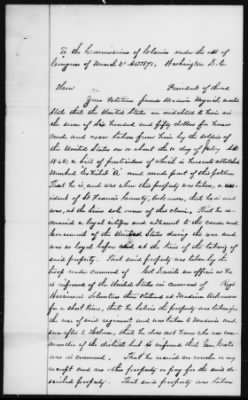 To the Commissioners of Claims under the act of
Congress of March 3d 1871, Washington D.C.
Your Petitioner James Madison
State that the United States is indebted to him in
the sum of Six hundred and fifty dollars for
and were taken from him by the soldiers of
the United States on or about the 10 day of July AD
1862, a bill of particulars of which is hereunto attached
Marked Exhibit A and made part of this petition
That he is, and was when this property was taken, a res-
ident of St Francis County, Arkansas, that he is and
was, at the time sole owner of this claim, That he re-
mained a loyal citizen and adherent to the cause and
Government of the United States during the war and
was so loyal before and at the time of the taking of
said property. That said property was taken by the
troops under command of Col Daniels an officer as he
is informed of the United States in command of Regt
Wisconsin Volunteers then stationed at Madison Arkansas
for a short time, that he believes the property was taken for
the use of said regiment and was taken to Madison and
soon after to Helena, that he does not know who was com-
mander of the district but is informed that Genl Curtis
was in command. That he received no voucher or any
receipt and no other property or pay for the said de-
scribed property. That said property was taken